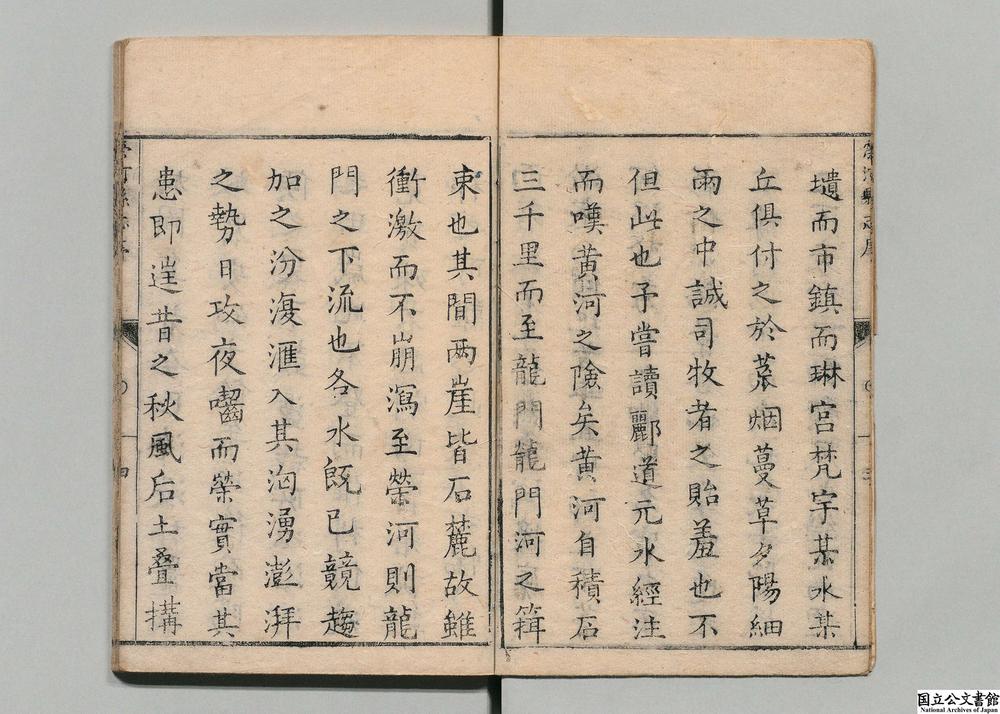 壝而市鎮而琳宫梵宇某水某
丘俱付之於荒烟蔓草夕陽細
雨之中誠司牧者之貽羞也不
但此也予嘗讀酈道元水經注
而嘆黄河之險矣黄河自積石
三千里而至龍門龍門河之
束也其間兩崖皆石麓故雖
衝激而不崩瀉至榮河則龍
門之下流也各水旣已競趨
加之汾𣸪滙入其洶湧澎湃
之勢日攻夜齧而榮實當其
患即遑昔之秋風后土疊搆
榮河縣志序
三
四
国立公文書館
National Archives of Japan